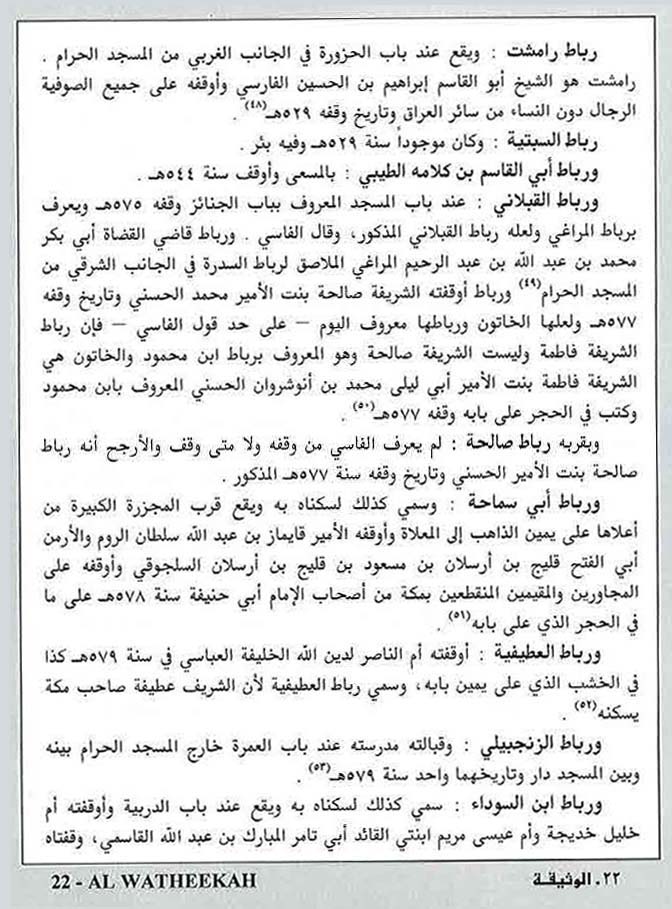 رباط رامشت : ويقع عند باب الحزورة في الجانب الغربي من المسجد الحرام .
رامشت هو الشيخ أبو القاسم إبراهيم بن الحسين الفارسي وأوقفه على جميع الصوفية
الرجال دون النساء من سائر العراق وتاريخ وقفه ٥٢٩هـ(٤٨) .
رباط السبتية : وكان موجوداً سنة ٥٢٩هـ وفيه بئر .
ورباط أبي القاسم بن كلامه الطيبي : بالمسعى وأوقف سنة ٥٤٤هـ .
ورباط القبلاني : عند باب المسجد المعروف بباب الجنائز وقفه ٥٧٥هـ ويعرف
برباط المراغي ولعله رباط القبلاني المذكور، وقال الفاسي . ورباط قاضي القضاة أبي بكر
محمد بن عبد الله بن عبد الرحيم المراغي الملاصق لرباط السدرة في الجانب الشرقي من
المسجد الحرام(٤٩) ورباط أوقفته الشريفة صالحة بنت الأمير محمد الحسني وتاريخ وقفه
٥٧٧هـ ولعلها الخاتون ورباطها معروف اليوم – على حد قول الفاسي – فإن رباط
الشريفة فاطمة وليست الشريفة صالحة وهو المعروف برباط ابن محمود والخاتون هي
الشريفة فاطمة بنت الأمير أبي ليلى محمد بن أنوشروان الحسني المعروف بابن محمود
وكتب في الحجر على بابه وقفه ٥٧٧هـ(٥٠) .
وبقربه رباط صالحة : لم يعرف الفاسي من وقفه ولا متى وقف والأرجح أنه رباط
صالحة بنت الأمير الحسني وتاريخ وقفه سنة ٥٧٧هـ المذكور .
ورباط أبي سماحة : وسمي كذلك لسكناه به ويقع قرب المجزرة الكبيرة من
أعلاها على يمين الذاهب إلى المعلاة وأوقفه الأمير قايماز بن عبد الله سلطان الروم والأرمن
أبي الفتح قليج بن أرسلان بن مسعود بن قليج بن أرسلان السلجوقي وأوقفه على
المجاورين والمقيمين المنقطعين بمكة من أصحاب الإمام أبي حنيفة سنة ٥٧٨هـ على ما
في الحجر الذي على بابه(٥١) .
ورباط العطيفية : أوقفته أم الناصر لدين الله الخليفة العباسي في سنة ٥٧٩هـ كذا
في الخشب الذي على يمين بابه، وسمي رباط العطيفية لأن الشريف عطيفة صاحب مكة
يسكنه(٥٢) .
ورباط الزنجبيلي : وقبالته مدرسته عند باب العمرة خارج المسجد الحرام بينه
وبين المسجد دار وتاريخهما واحد سنة ٥٧٩هـ(٥٣) .
ورباط ابن السوداء : سمي كذلك لسكناه به ويقع عند باب الدريبة وأوقفته أم
خليل خديجة وأم عيسى مريم ابنتي القائد أبي تامر المبارك بن عبد الله القاسمي، وقفتاه
٢٢ - الوثيقـة
22 - AL WATHEEKAH